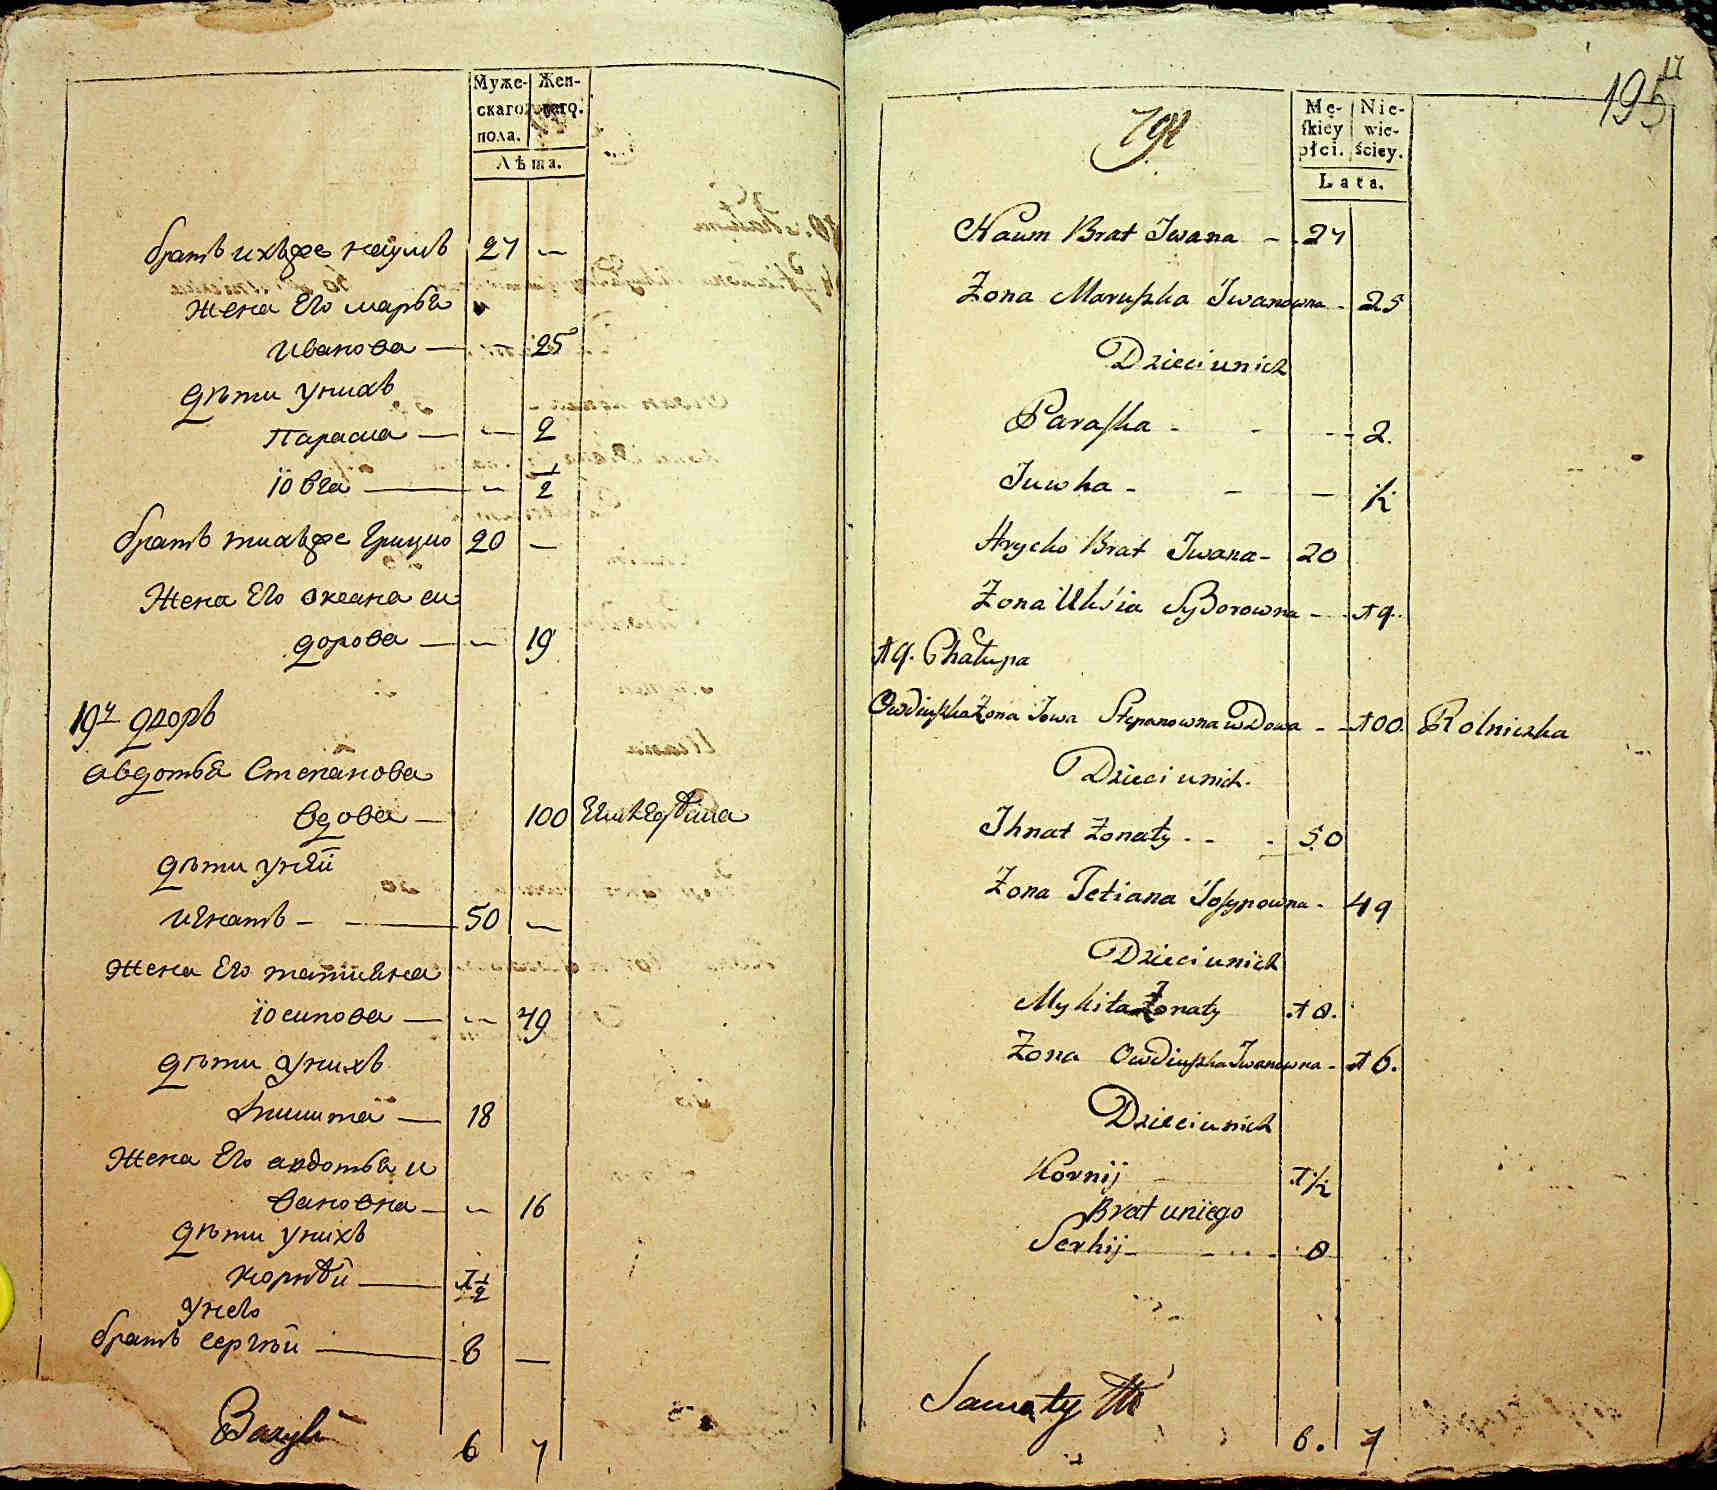 Муже-
скаго
пола.
Жен-
Лѣта.
братъ ихъже наумъ 27 —
Жена Его марья
Иванова — — 25
дѣти унихъ
Параска — — 2
Ювга — — 1/2
братъ тихъже Грицко 20 —
Жена Его оксана си
дорова — — 19
19й дворъ
Авдотья Степанова
вдова — 100
дѣти унѣй
Игнатъ — 50 —
Жена Его татияна
Юсипова — — 49
дѣти унихъ
Микита — 18
Жена Его авдотья и
вановна — — 16
дѣти унихъ
Корнѣй — 1 1/2
унего
братъ сергѣй — 8 —
Bazyli
6 7
195
17
Mę-
skiey
płci.
Nie-
wie-
ściey.
Lata.
Naum Brat Iwana - 27
Zona Maruszka Iwanowna - 25
Dzieci unich
Paraska - - - 2.
Juwka - - - ½
Hrycko Brat Iwana - 20
Zona Uksia Sydorowna - - 19.
19. Chałupa
Owdiuszka Zona Jowa Stepanowna wdowa - - 100. Rolniczka
Dzieci unich.
Ihnat Zonaty - - - 50
Zona Tetiana Josypowna - 49
Dzieci unich
Mykita Zonaty 18.
Zona Owdiuszka Iwanowna - 16.
Dzieci unich
Kornij 1½
Brat uniego
Serhij - - - 8
6. 7